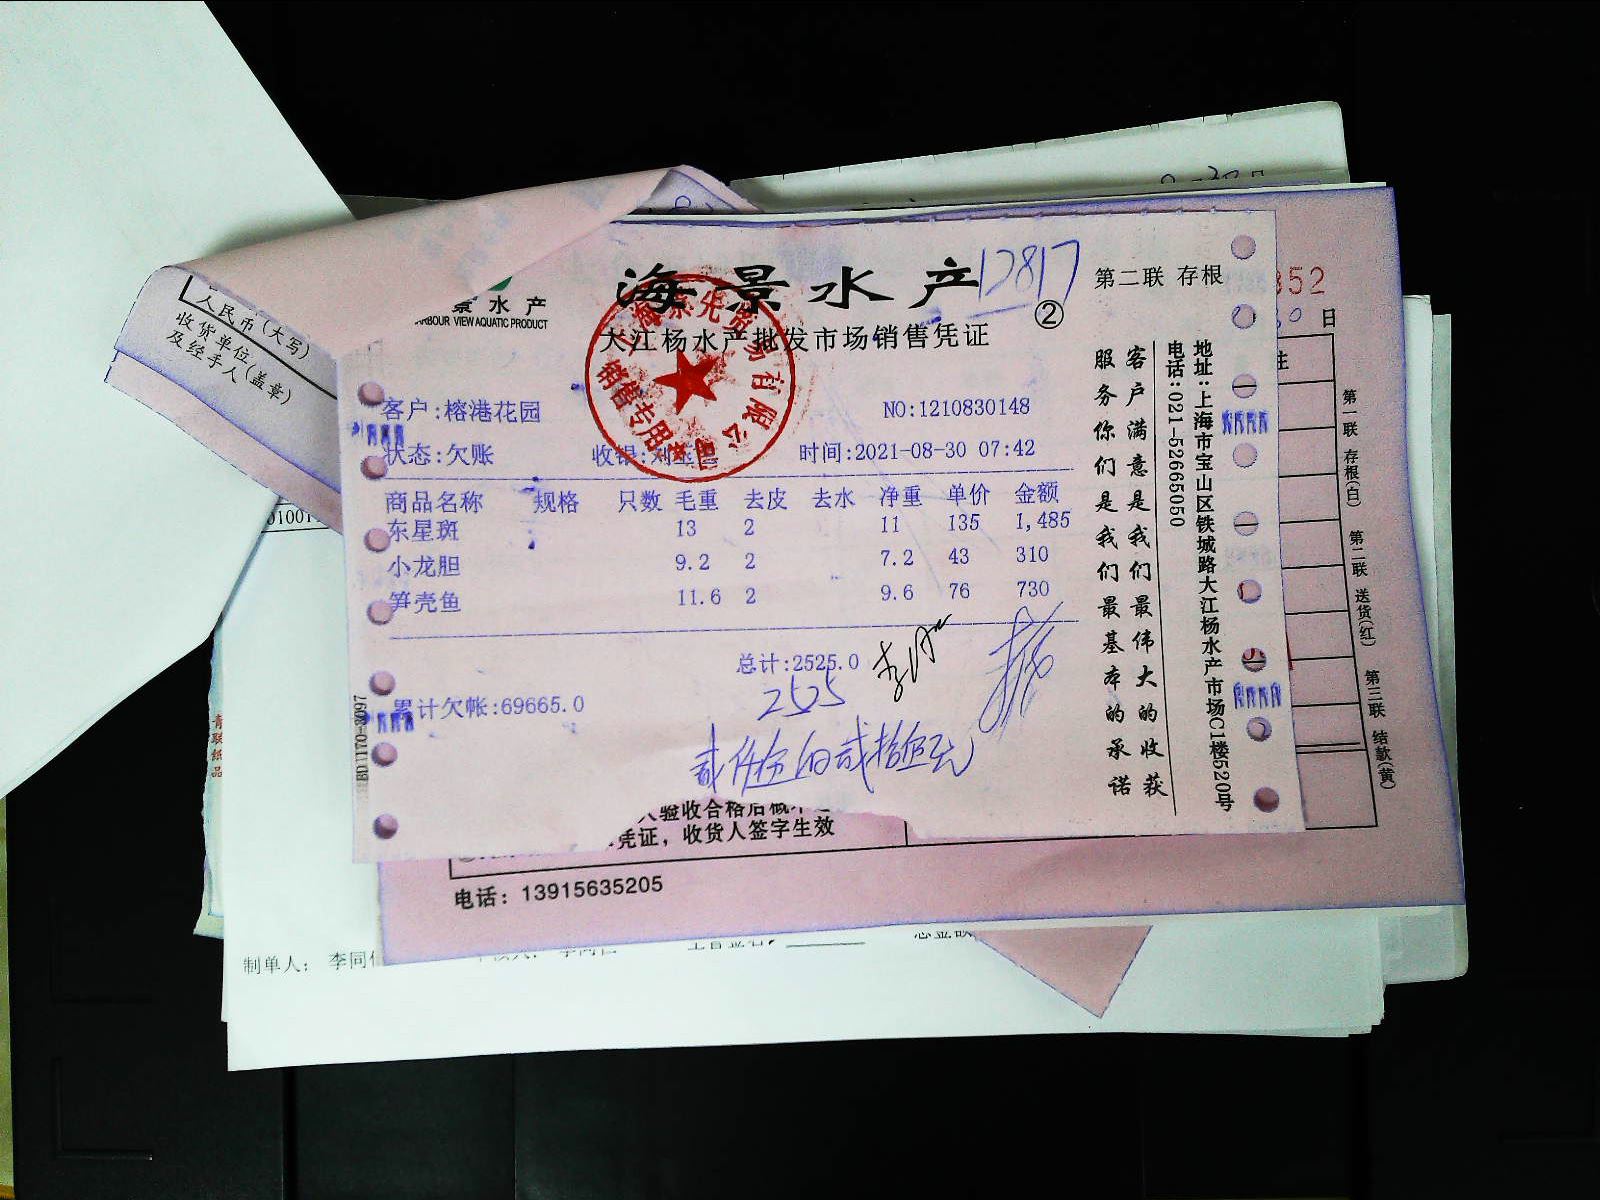 海景水产
12817
第二联 存根
景水产
HARBOUR VIEW AQUATIC PRODUCT
②
大江杨水产批发市场销售凭证
销售专用章
客户:榕港花园
NO:1210830148
状态:欠账
收银:刘
时间:2021-08-30 07:42
商品名称 规格 只数 毛重 去皮 去水 净重 单价 金额
东星斑 13 2 11 135 1,485
小龙胆 9.2 2 7.2 43 310
笋壳鱼 11.6 2 9.6 76 730
总计:2525.0
2525
累计欠帐:69665.0
贰仟伍佰贰拾伍元
客户满意是我们最伟大的收获
服务你们是我们最基本的承诺
地址:上海市宝山区铁城路大江杨水产市场C1楼520号
电话:021-52665050
人民币(大写)
收货单位
及经手人(盖章)
352
30日
第一联 存根(白) 第二联 送货(红) 第三联 结款(黄)
验收合格后概不
凭证，收货人签字生效
电话：13915635205
制单人： 李同
青联纸品